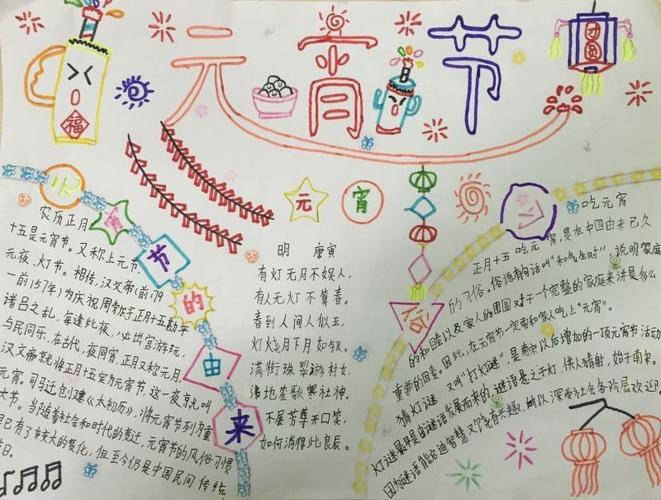 元宵节
团圆
福
元宵节的由来
农历正月
十五是元宵节。又称上元节,
元夜、灯节。相传,汉文帝(前179
—前157年)为庆祝周勃于正月十五勘平
诸吕之乱,每逢此夜,必出宫游玩,
与民同乐。在古代,夜同宵,正月又称元月,
汉文帝就将正月十五定为元宵节,这一夜就叫
元宵。司马迁创建《太初历》,将元宵节列为重
大节。当随着社会和时代的变迁,元宵节的风俗习惯
已有了较大的变化,但至今仍是中国民间传统
节日。
元宵
明 唐寅
有灯无月不娱人,
有月无灯不算春。
春到人间人似玉,
灯烧月下月如银。
满街珠翠游村女,
沸地笙歌赛社神。
不展芳尊开口笑,
如何消得此良辰。
吃元宵
正月十五吃元宵,是在中国由来已久
的习俗。俗语有句话叫"和气生财",说明家庭
的和睦以及家人的团圆对于一个完整的家庭来讲是多么
重要的因素。因此,在元宵节一定要和家人吃上"元宵"。
猜灯谜 又叫"打灯谜"是南宋以后增加的一项元宵节活动
灯谜最早是由谜语发展而来的 谜语悬之于灯,供人猜射,始于南宋。
因为谜语能启迪智慧又饶有兴趣,所以深受社会各阶层欢迎